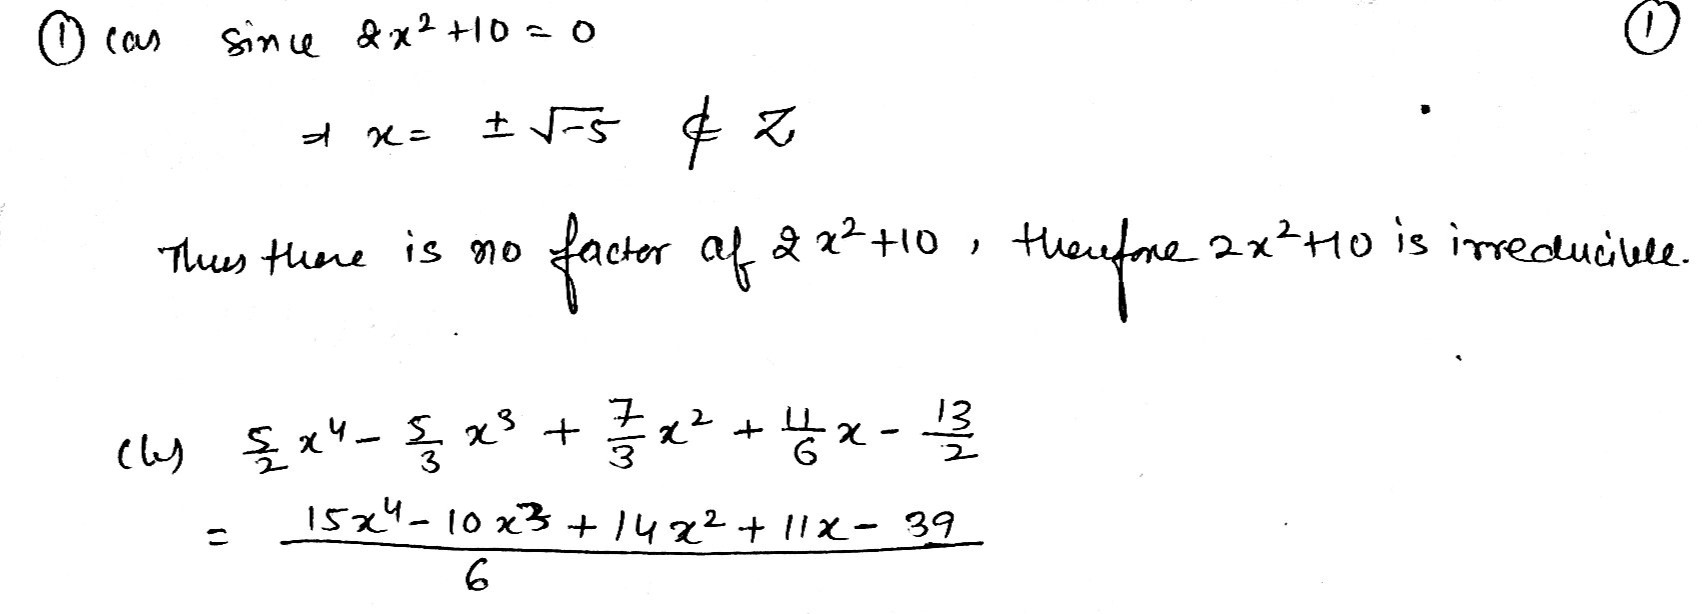 ① (a) Since 2x² + 10 = 0 ①
⇒ x = ± √-5 ∉ Z
Thus there is no factor of 2x² + 10, therefore 2x² + 10 is irreducible.
(b) 5/2 x⁴ - 5/3 x³ + 7/3 x² + 11/6 x - 13/2
= (15x⁴ - 10x³ + 14x² + 11x - 39)/6